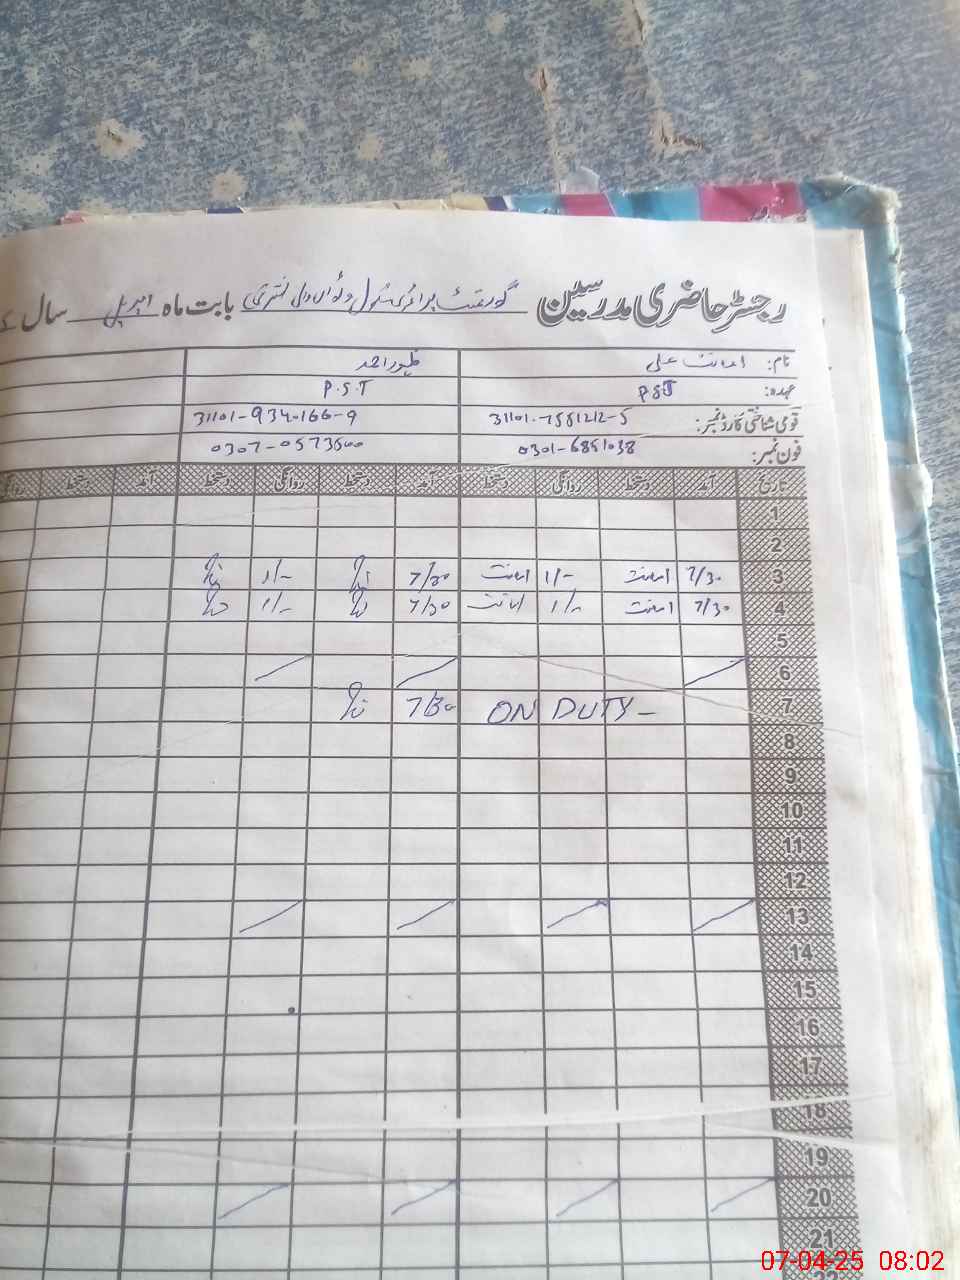 رجسٹر حاضری مدرسین گورنمنٹ پرائمری سکول بابت ماہ اپریل سال
نام: امانت علی ظہور احمد
عہدہ: PST P.S.T
قومی شناختی کارڈ نمبر: 31101-7551212-5 31101-9340166-9
فون نمبر: 0301-6851038 0307-0573600
تاریخ آمد دستخط روانگی دستخط آمد دستخط روانگی دستخط آمد دستخط روانگی
1
2
3 7/30 امانت 1/- امانت 7/30 1/-
4 7/30 امانت 1/- امانت 7/30 1/-
5
6
7 ON DUTY - 7/30
8
9
10
11
12
13
14
15
16
17
18
19
20
21
22
07-04-25 08:02